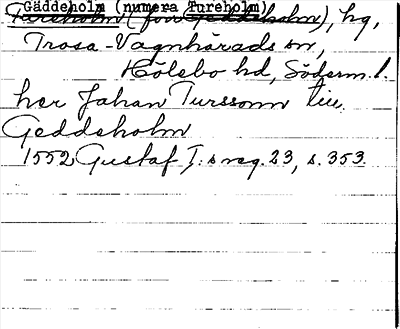 Gäddeholm (numera Tureholm)
Tureholm (förr Geddeholm), hg,
Trosa-Vagnhärads sn,
Hölebo hd, Söderm. l.
her Johan Turssonn till
Geddeholm
1552 Gustaf I:s reg. 23, s. 353.